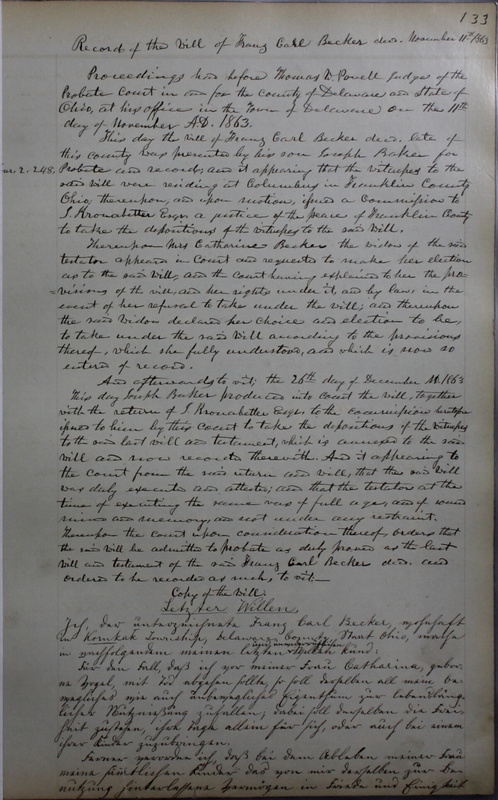 133
Record of the Will of Franz Carl Becker decd. November 11th 1863
Proceedings had before Thomas W Powell Judge of the
Probate Court in and for the County of Delaware and State of
Ohio, at his office in the Town of Delaware on the 11th
day of November A.D. 1863.
This day the will of Franz Carl Becker decd. late of
this county was presented by his son Joseph Baker for
2. 248.
Probate and record, and it appearing that the witnesses to the
said will were residing at Columbus in Franklin County
Ohio, thereupon, and upon motion, issued a Commission to
Esqr. a justice of the peace of Franklin County
to take the depositions of the witnesses to the said Will.
Thereupon Mrs Catharine Becker the widow of the said
testator appeared in Court and requested to make her election
as to the said Will, and the Court having explained to her the pro-
visions of the will, and her rights under it, and by law, in the
event of her refusal to take under the will; and thereupon
the said Widow declared her choice and election to be,
to take under the said Will according to the provisions
thereof, which she fully understood, and which is now so
entered of record.
And afterwards to wit; the 26th day of December AD. 1863
This day Joseph Baker produced into Court the will, together
with the return of Esqr. to the commission heretofore
issued to him by this Court to take the depositions of the witnesses
to the said last will and testament, which is annexed to the said
Will and now recorded therewith. And it appearing to
the Court from the said return and will, that the said Will
was duly executed and attested; and that the testator at the
time of executing the same was of full age, and of sound
mind and memory, and not under any restraint.
Thereupon the Court upon consideration thereof, orders that
the said Will be admitted to probate as duly proved as the last
Will and testament of the said Franz Carl Becker decd. and
ordered to be recorded as such, to wit:—
Copy of the Will.
Letzter Willen.
Ich, der unterzeichnete Franz Carl Becker, wohnhaft
in Township, Delaware County, Staat Ohio, mache
in nachfolgendem meinen letzten Willen kund:
Für den Fall, daß ich vor meiner Frau Catharina, gebor-
ne Vogel, mit Tod abgehen sollte, so soll derselben all mein be-
wegliches wie auch unbewegliches Eigenthum zur lebensläng-
lichen Nutznießung zufallen; dabei soll derselben die Frei-
heit zustehen, ihre Tage allein für sich, oder auch bei einem
ihrer Kinder zuzubringen.
Ferner verordne ich, daß bei dem Ableben meiner Frau
meine sämtlichen Kinder das von mir derselben zur Be-
nutzung hinterlassene Vermögen in Friede und Einigkeit